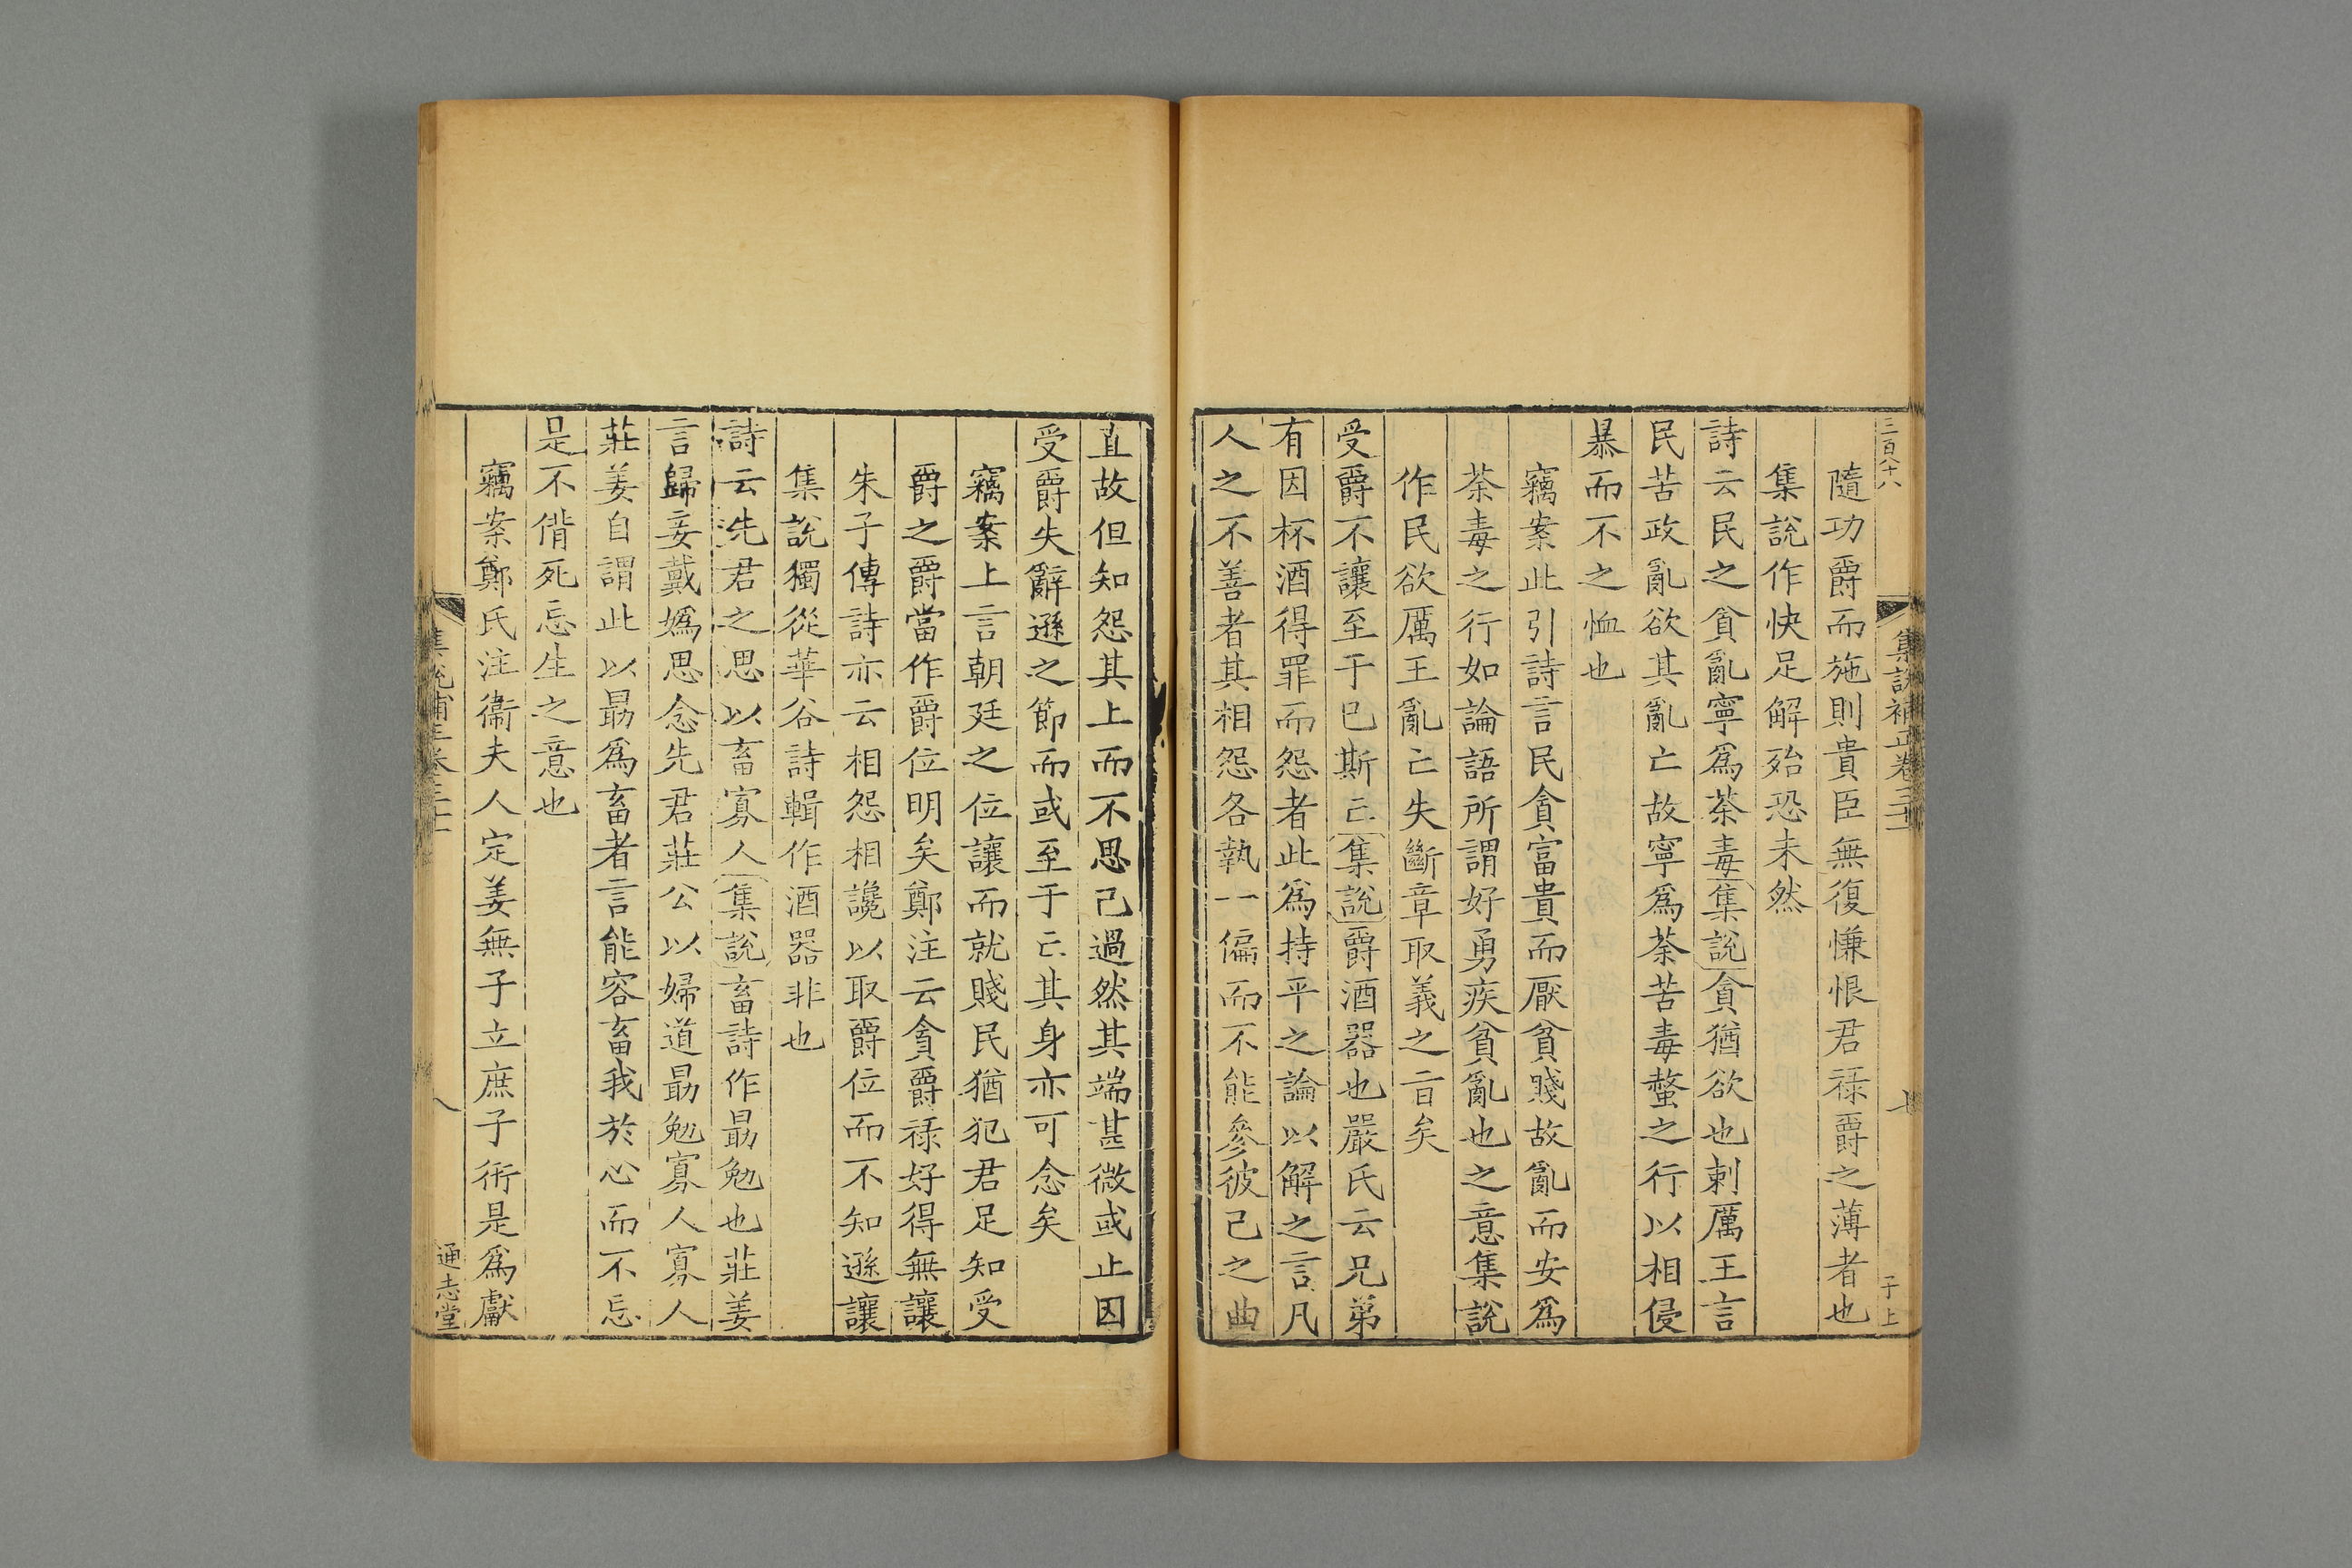 三百六十八
集說補正卷三十
七
子上
隨功爵而施則貴臣無復慊恨君祿爵之薄者也
集說作快足解殆恐未然
詩云民之貪亂寧爲荼毒集說貪猶欲也刺厲王言
民苦政亂欲其亂亡故寧爲荼苦毒螫之行以相侵
暴而不之恤也
竊案此引詩言民貪富貴而厭貧賤故亂而安爲
荼毒之行如論語所謂好勇疾貧亂也之意集說
作民欲厲王亂亡失斷章取義之旨矣
受爵不讓至于已斯亡集說爵酒器也嚴氏云兄弟
有因杯酒得罪而怨者此爲持平之論以解之言凡
人之不善者其相怨各執一偏而不能參彼己之曲
直故但知怨其上而不思己過然其端甚微或止因
受爵失辭遜之節而或至于亡其身亦可念矣
竊案上言朝廷之位讓而就賤民猶犯君足知受
爵之爵當作爵位明矣鄭注云貪爵祿好得無讓
朱子傳詩亦云相怨相讒以取爵位而不知遜讓
集說獨從華谷詩輯作酒器非也
詩云先君之思以畜寡人集說畜詩作勗勉也莊姜
言歸妾戴嬀思念先君莊公以婦道勗勉寡人寡人
莊姜自謂此以勗爲畜者言能容畜我於心而不忘
是不偝死忘生之意也
竊案鄭氏注衞夫人定姜無子立庶子衎是爲獻
集說補正卷三十
八
通志堂